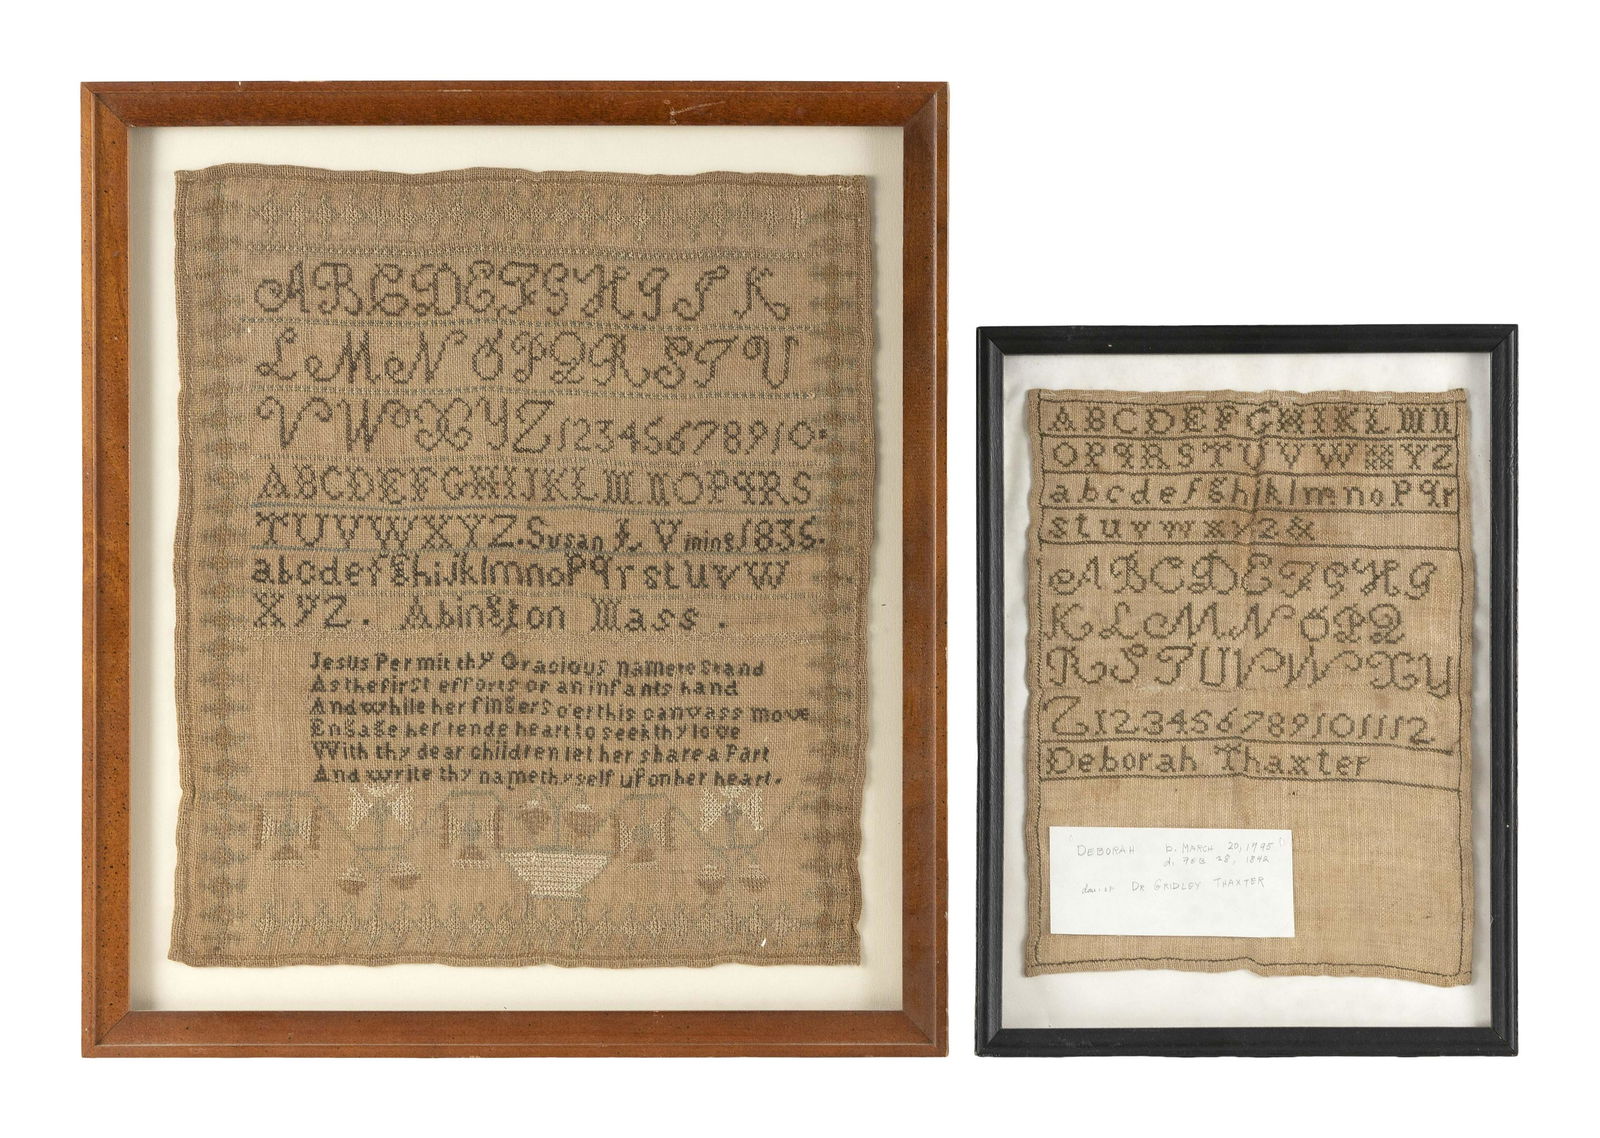 A B C D E F G H I J K
L M N O P Q R S T U
V W X Y Z 1 2 3 4 5 6 7 8 9 10.
A B C D E F G H I J K L M N O P Q R S
T U V W X Y Z. Susan L Vining 1836.
a b c d e f g h i j k l m n o p q r s t u v w
x y z. Abington Mass.
Jesus Permit thy Gracious name to stand
As the first efforts of an infants hand
And while her fingers o'er this canvass move
Engage her tende heart to seek thy love
With thy dear children let her share a Part
And write thy name thyself upon her heart.
A B C D E F G H I K L M N
O P Q R S T U V W X Y Z
a b c d e f g h i k l m n o p q r
s t u v w x y z &
A B C D E F G H I
K L M N O P Q
R S T U V W X Y
Z 1 2 3 4 5 6 7 8 9 10 11 12
Deborah Thaxter
DEBORAH b. MARCH 20, 1795
d. FEB 28, 1842
dau. of DR GRIDLEY THAXTER